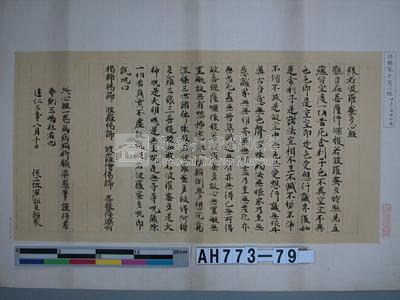 般若波羅蜜多心経
觀自在菩薩行深般若波羅蜜多時照見五
蘊皆空度一切苦厄舍利子色不異空空不異
色色即是空空即是色受想行識亦復如
是舍利子是諸法空相不生不滅不垢不淨
不增不減是故空中無色無受想行識無眼
耳鼻舌身意無色聲香味觸法無眼界乃至無
意識界無無明亦無無明盡乃至無老死亦
無老死盡無苦集滅道無智亦無得以無所得
故菩提薩埵依般若波羅蜜多故心無罣礙無
罣礙故無有恐怖遠離一切顛倒夢想究竟
涅槃三世諸佛依般若波羅蜜多故得阿耨
多羅三藐三菩提故知般若波羅蜜多是大
神呪是大明呪是無上呪是無等等呪能除
一切苦真實不虛故說般若波羅蜜多呪即
說呪曰
揭諦揭諦 波羅揭諦 波羅僧揭諦 菩提薩婆訶
此心經一卷為病
奉納三嶋社者也
建仁三年八月十日
AH773-79